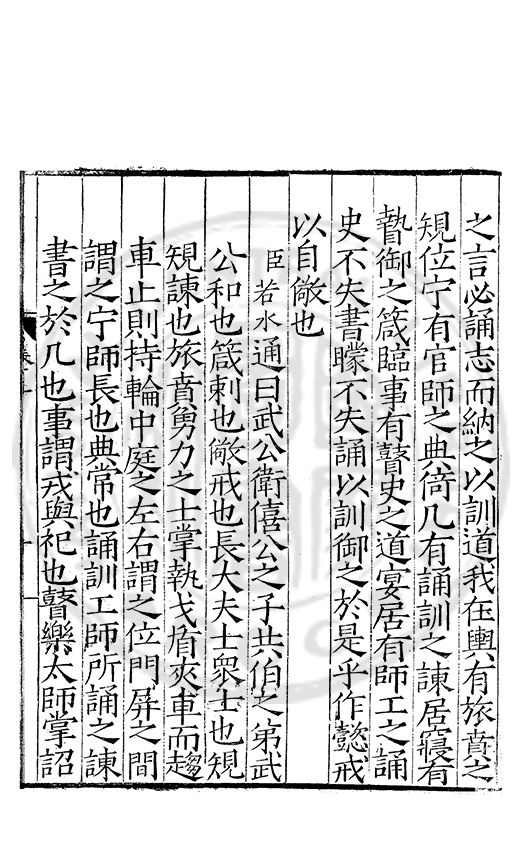 之言必誦志而納之以訓道我在輿有旅賁之
規位宁有官師之典倚几有誦訓之諫居寢有
暬御之箴臨事有瞽史之道宴居有師工之誦
史不失書矇不失誦以訓御之於是乎作懿戒
以自儆也
臣若水通曰武公衛僖公之子共伯之弟武
公和也箴刺也儆戒也長大夫士衆士也規
規諫也旅賁勇力之士掌執戈盾夾車而趨
車止則持輪中庭之左右謂之位門屏之間
謂之宁師長也典常也誦訓工師所誦之諫
書之於几也事謂戎與祀也瞽樂太師掌詔